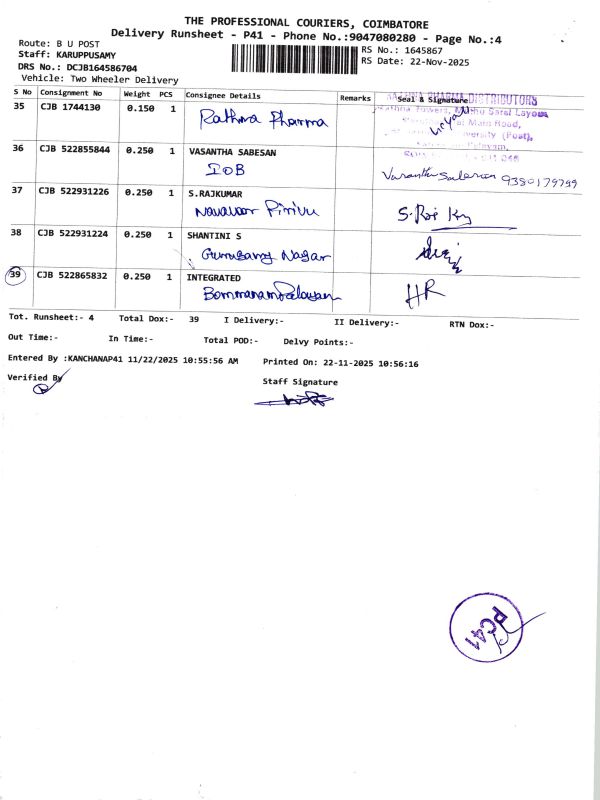 THE PROFESSIONAL COURIERS, COIMBATORE
Delivery Runsheet - P41 - Phone No.:9047080280 - Page No.:4
Route: B U POST
Staff: KARUPPUSAMY
DRS No.: DCJB164586704
Vehicle: Two Wheeler Delivery
RS No.: 1645867
RS Date: 22-Nov-2025
S No Consignment No Weight PCS Consignee Details Remarks Seal & Signature
35 CJB 1744130 0.150 1
Rathna Pharma
DISTRIBUTORS
Main Road,
36 CJB 522855844 0.250 1 VASANTHA SABESAN
IOB
9380179799
37 CJB 522931226 0.250 1 S.RAJKUMAR
Navavoor Pirivu
38 CJB 522931224 0.250 1 SHANTINI S
Gurusamy Nagar
39 CJB 522865832 0.250 1 INTEGRATED
HR
Tot. Runsheet:- 4 Total Dox:- 39 I Delivery:- II Delivery:- RTN Dox:-
Out Time:- In Time:- Total POD:- Delvy Points:-
Entered By :KANCHANAP41 11/22/2025 10:55:56 AM Printed On: 22-11-2025 10:56:16
Verified By
Staff Signature
PC41